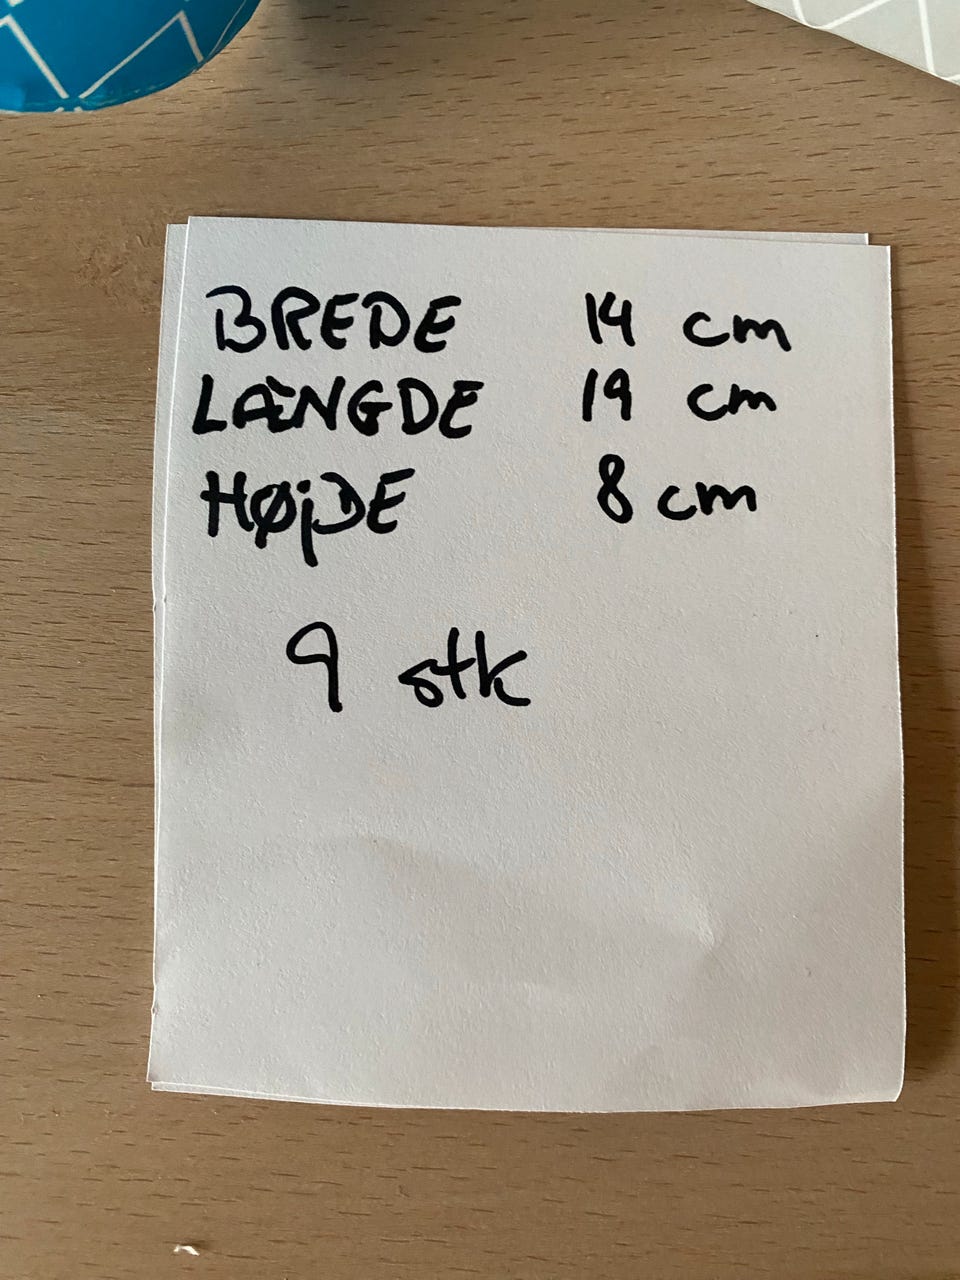 BREDE 14 cm
LÆNGDE 19 cm
HØjDE 8 cm
9 stk